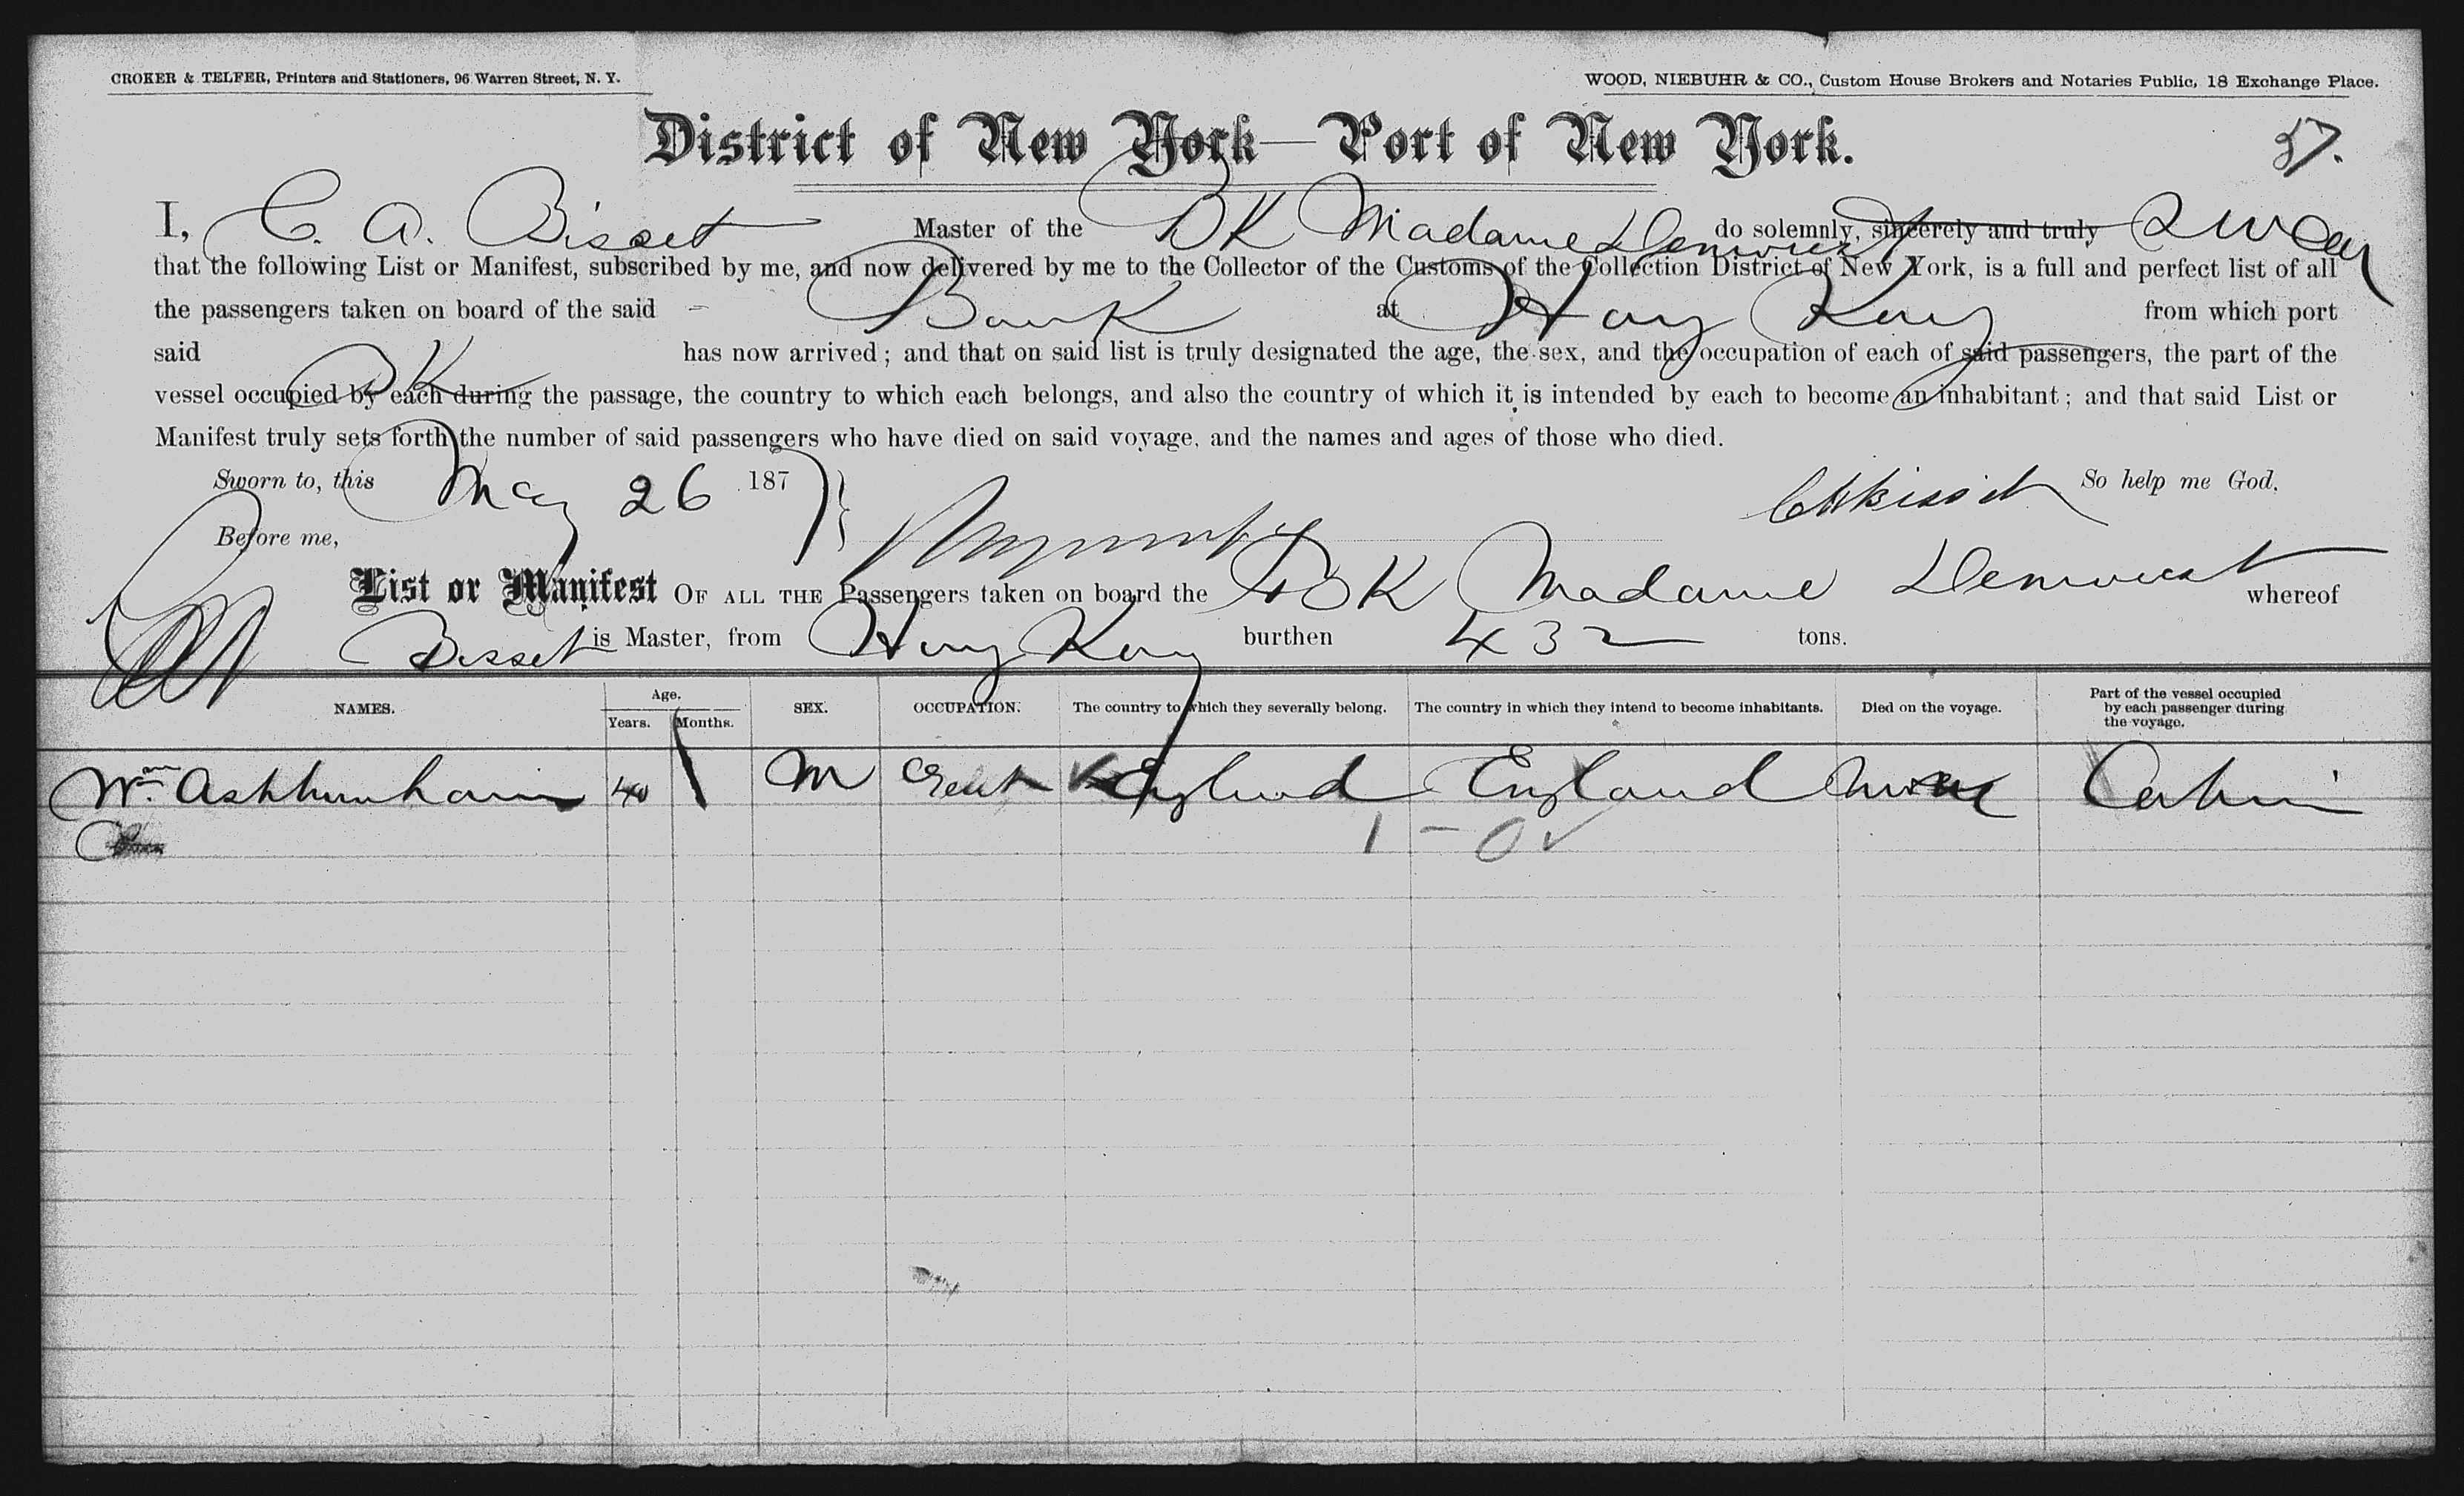 CROKER & TELFER, Printers and Stationers, 96 Warren Street, N. Y.
WOOD, NIEBUHR & CO., Custom House Brokers and Notaries Public, 18 Exchange Place.
District of New York—Port of New York.
37.
I, C. A. Bisset Master of the BK Madame Demorest do solemnly, sincerely and truly swear
that the following List or Manifest, subscribed by me, and now delivered by me to the Collector of the Customs of the Collection District of New York, is a full and perfect list of all
the passengers taken on board of the said Bark at Hong Kong from which port
said BK has now arrived; and that on said list is truly designated the age, the sex, and the occupation of each of said passengers, the part of the
vessel occupied by each during the passage, the country to which each belongs, and also the country of which it is intended by each to become an inhabitant; and that said List or
Manifest truly sets forth the number of said passengers who have died on said voyage, and the names and ages of those who died.
Sworn to, this May 26 1877 CABisset So help me God.
Before me,
List or Manifest OF ALL THE Passengers taken on board the BK Madame Demorest whereof
Bisset is Master, from Hong Kong burthen 432 tons.
NAMES. Age. Years. Months. SEX. OCCUPATION. The country to which they severally belong. The country in which they intend to become inhabitants. Died on the voyage. Part of the vessel occupied by each passenger during the voyage.
Wm Ashburnham 40 M Gent England England None Cabin
1 - 0 ✓